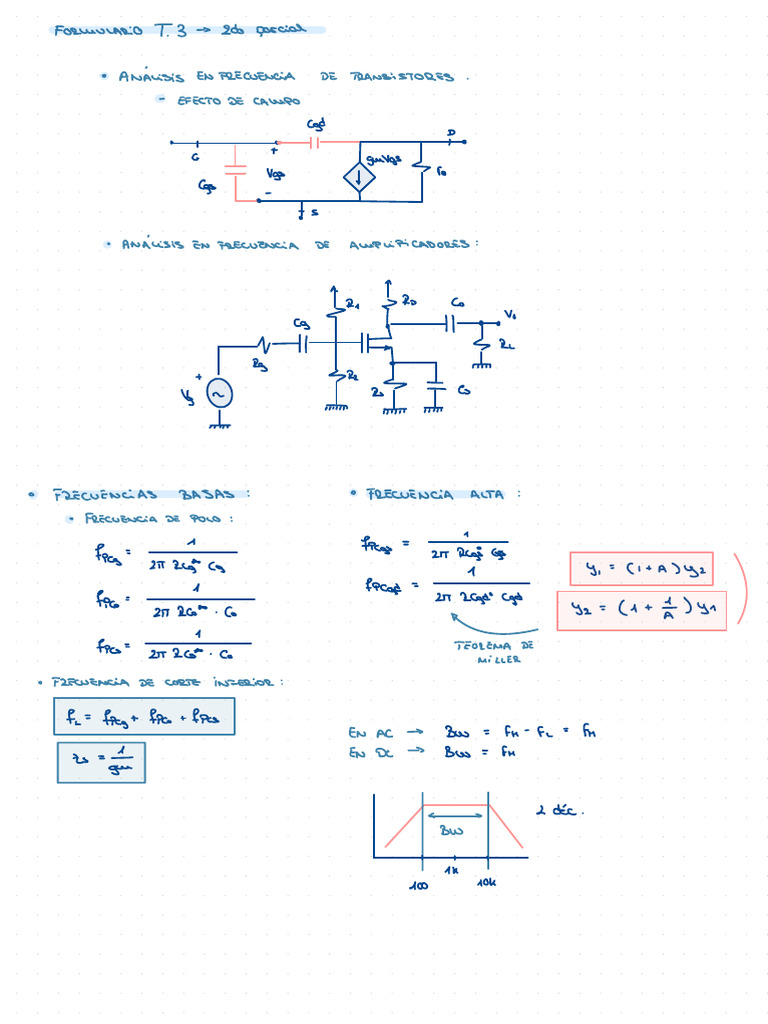 FORMULARIO T.3 → 2do parcial
• ANÁLISIS EN FRECUENCIA DE TRANSISTORES.
- EFECTO DE CAMPO
Cgd
D
G
+
gmVgs
Vgs
ro
Cgs
-
S
• ANÁLISIS EN FRECUENCIA DE AMPLIFICADORES:
R1
RD
Co
Vo
Cg
RL
Rg
R2
+
Vg
Rs
Cs
• FRECUENCIAS BAJAS:
• FRECUENCIA DE POLO:
fPCg = 1 / 2π RCg∞ Cg
fPCo = 1 / 2π RCo∞ · Co
fPCs = 1 / 2π RCs∞ · Cs
• FRECUENCIA DE CORTE INFERIOR:
fL = fPCg + fPCo + fPCs
rs = 1 / gm
• FRECUENCIA ALTA:
fPCgs = 1 / 2π RCgs° Cgs
fPCgd = 1 / 2π RCgd° Cgd
y1 = (1 + A) y2
y2 = (1 + 1/A) y1
TEOREMA DE
MILLER
EN AC → BW = FH - FL = FH
EN DC → BW = FH
2 déc.
BW
100
1k
10k